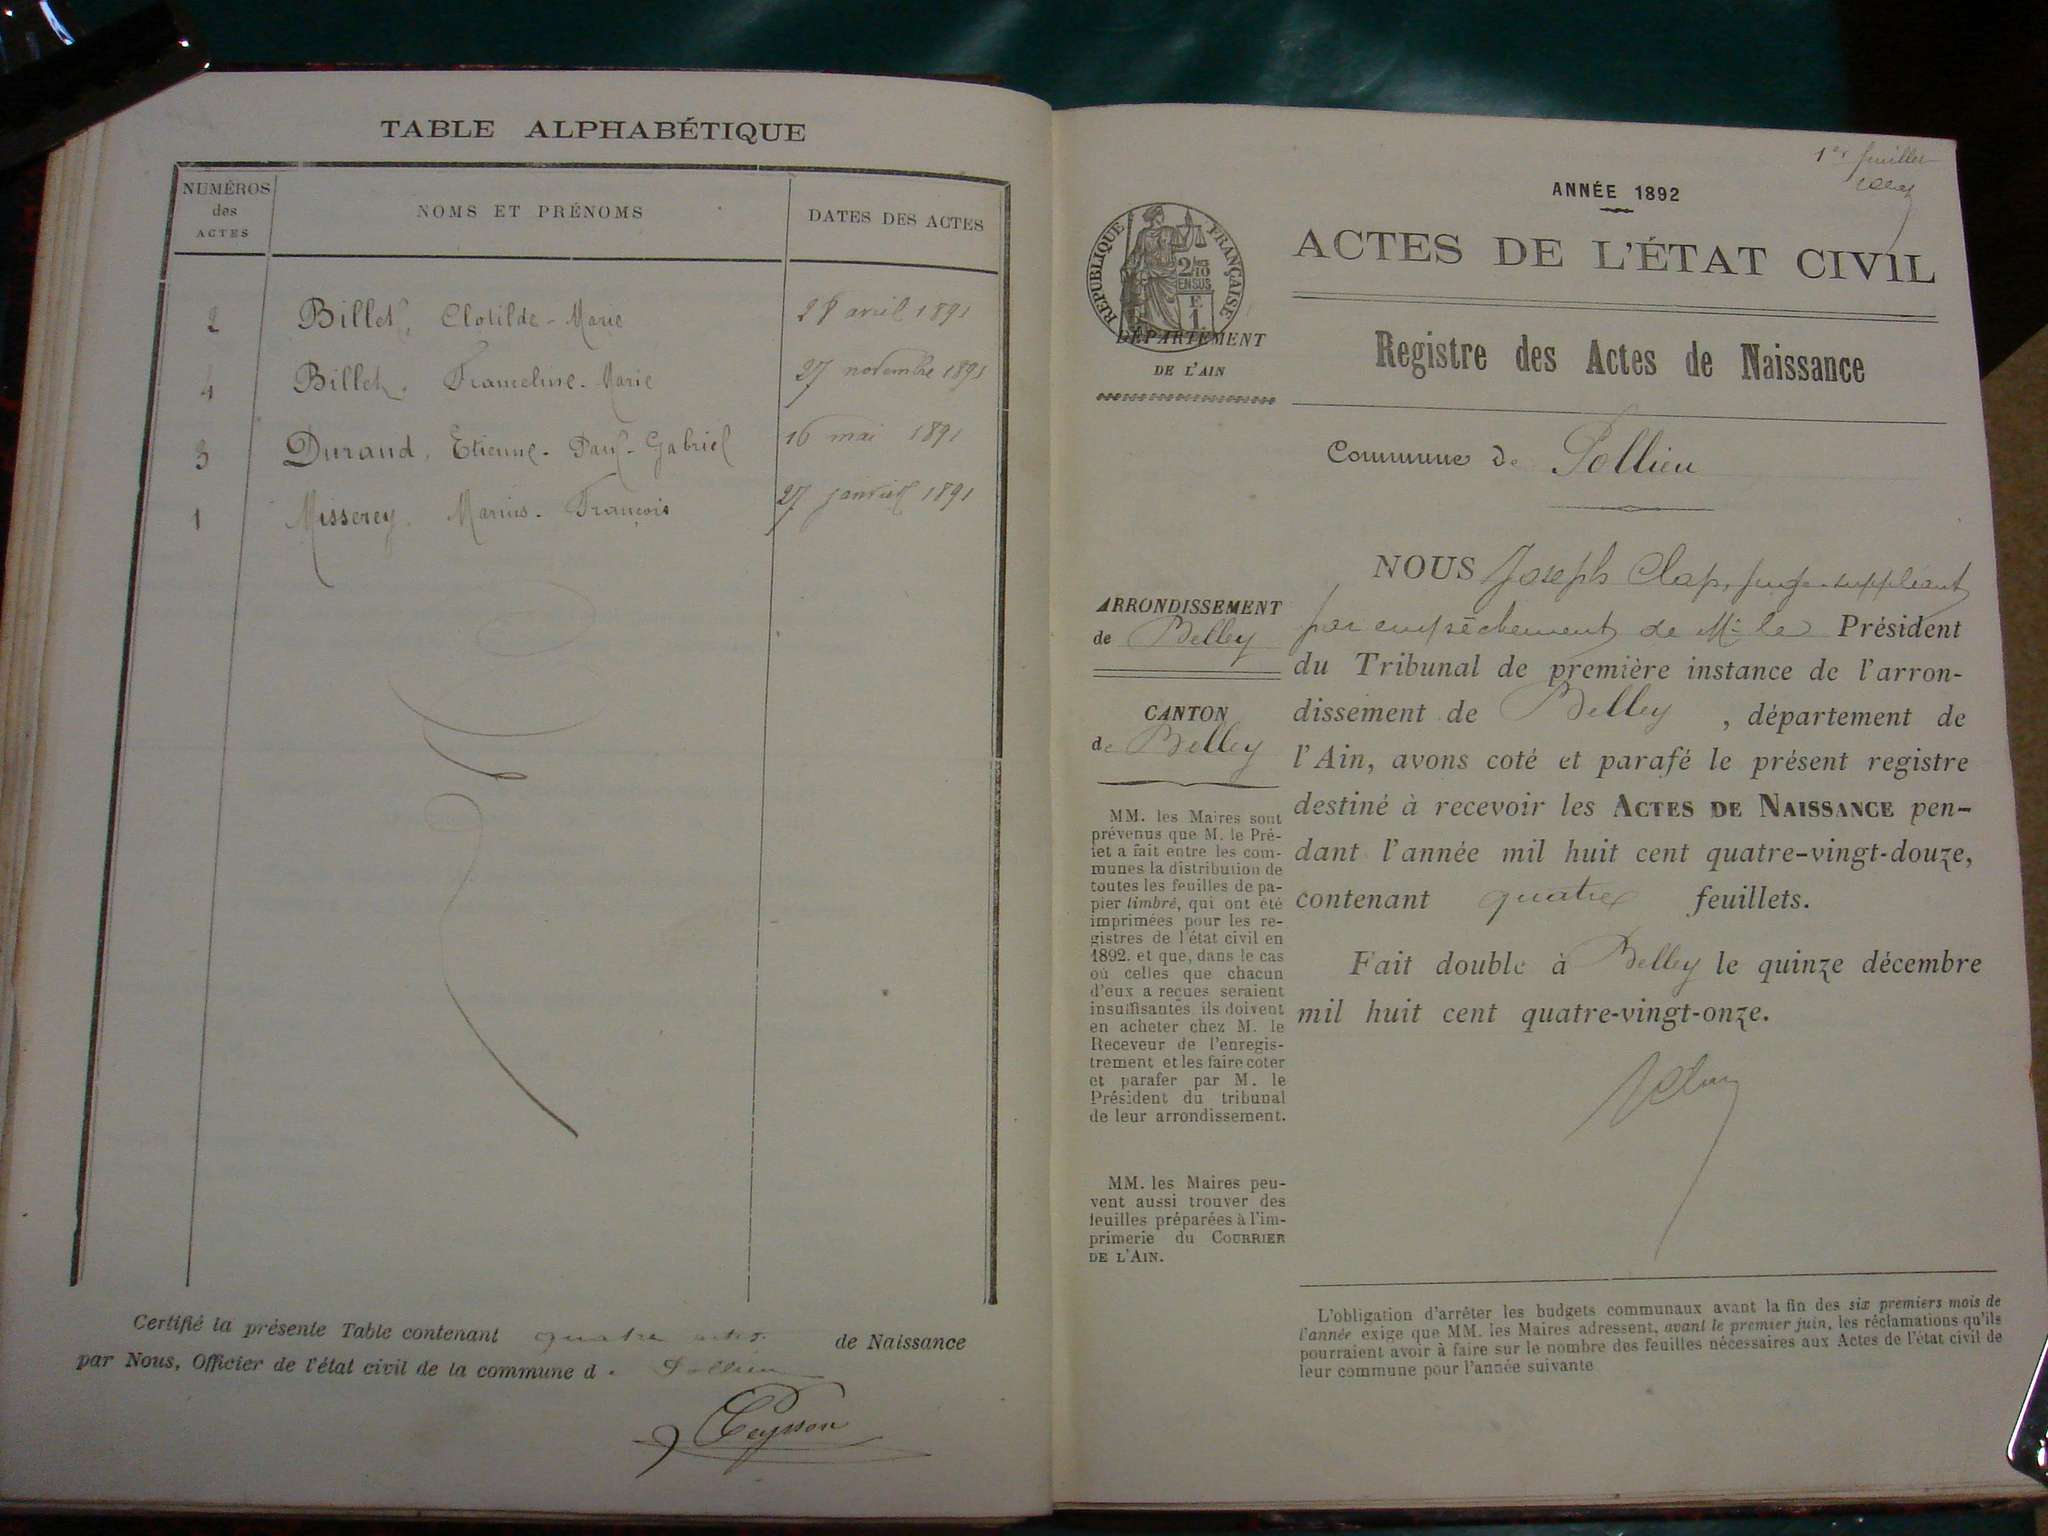 TABLE ALPHABÉTIQUE
NUMÉROS des ACTES
NOMS ET PRÉNOMS
DATES DES ACTES
2 Billet, Clotilde-Marie 28 avril 1891
4 Billet, Franceline-Marie 27 novembre 1891
3 Durand, Etienne-Paul-Gabriel 16 mai 1891
1 Misserey, Marius-François 27 janvier 1891
Certifié la présente Table contenant quatre actes de Naissance
par Nous, Officier de l'état civil de la commune d. Pollieu
Peysson
1er feuillet
ANNÉE 1892
ACTES DE L'ÉTAT CIVIL
RÉPUBLIQUE FRANÇAISE
2/10 EN SUS
E
1
DÉPARTEMENT
DE L'AIN
Registre des Actes de Naissance
Commune de Pollieu
ARRONDISSEMENT
de Belley
CANTON
de Belley
MM. les Maires sont
prévenus que M. le Pré-
fet a fait entre les com-
munes la distribution de
toutes les feuilles de pa-
pier timbré, qui ont été
imprimées pour les re-
gistres de l'état civil en
1892. et que, dans le cas
où celles que chacun
d'eux a reçues seraient
insuffisantes ils doivent
en acheter chez M. le
Receveur de l'enregis-
trement et les faire coter
et parafer par M. le
Président du tribunal
de leur arrondissement.
MM. les Maires peu-
vent aussi trouver des
feuilles préparées à l'im-
primerie du COURRIER
DE L'AIN.
NOUS Joseph Clap, juge suppléant
par empêchement de Mr le Président
du Tribunal de première instance de l'arron-
dissement de Belley, département de
l'Ain, avons coté et parafé le présent registre
destiné à recevoir les ACTES DE NAISSANCE pen-
dant l'année mil huit cent quatre-vingt-douze,
contenant quatre feuillets.
Fait double à Belley le quinze décembre
mil huit cent quatre-vingt-onze.
L'obligation d'arrêter les budgets communaux avant la fin des six premiers mois de
l'année exige que MM. les Maires adressent, avant le premier juin, les réclamations qu'ils
pourraient avoir à faire sur le nombre des feuilles nécessaires aux Actes de l'état civil de
leur commune pour l'année suivante